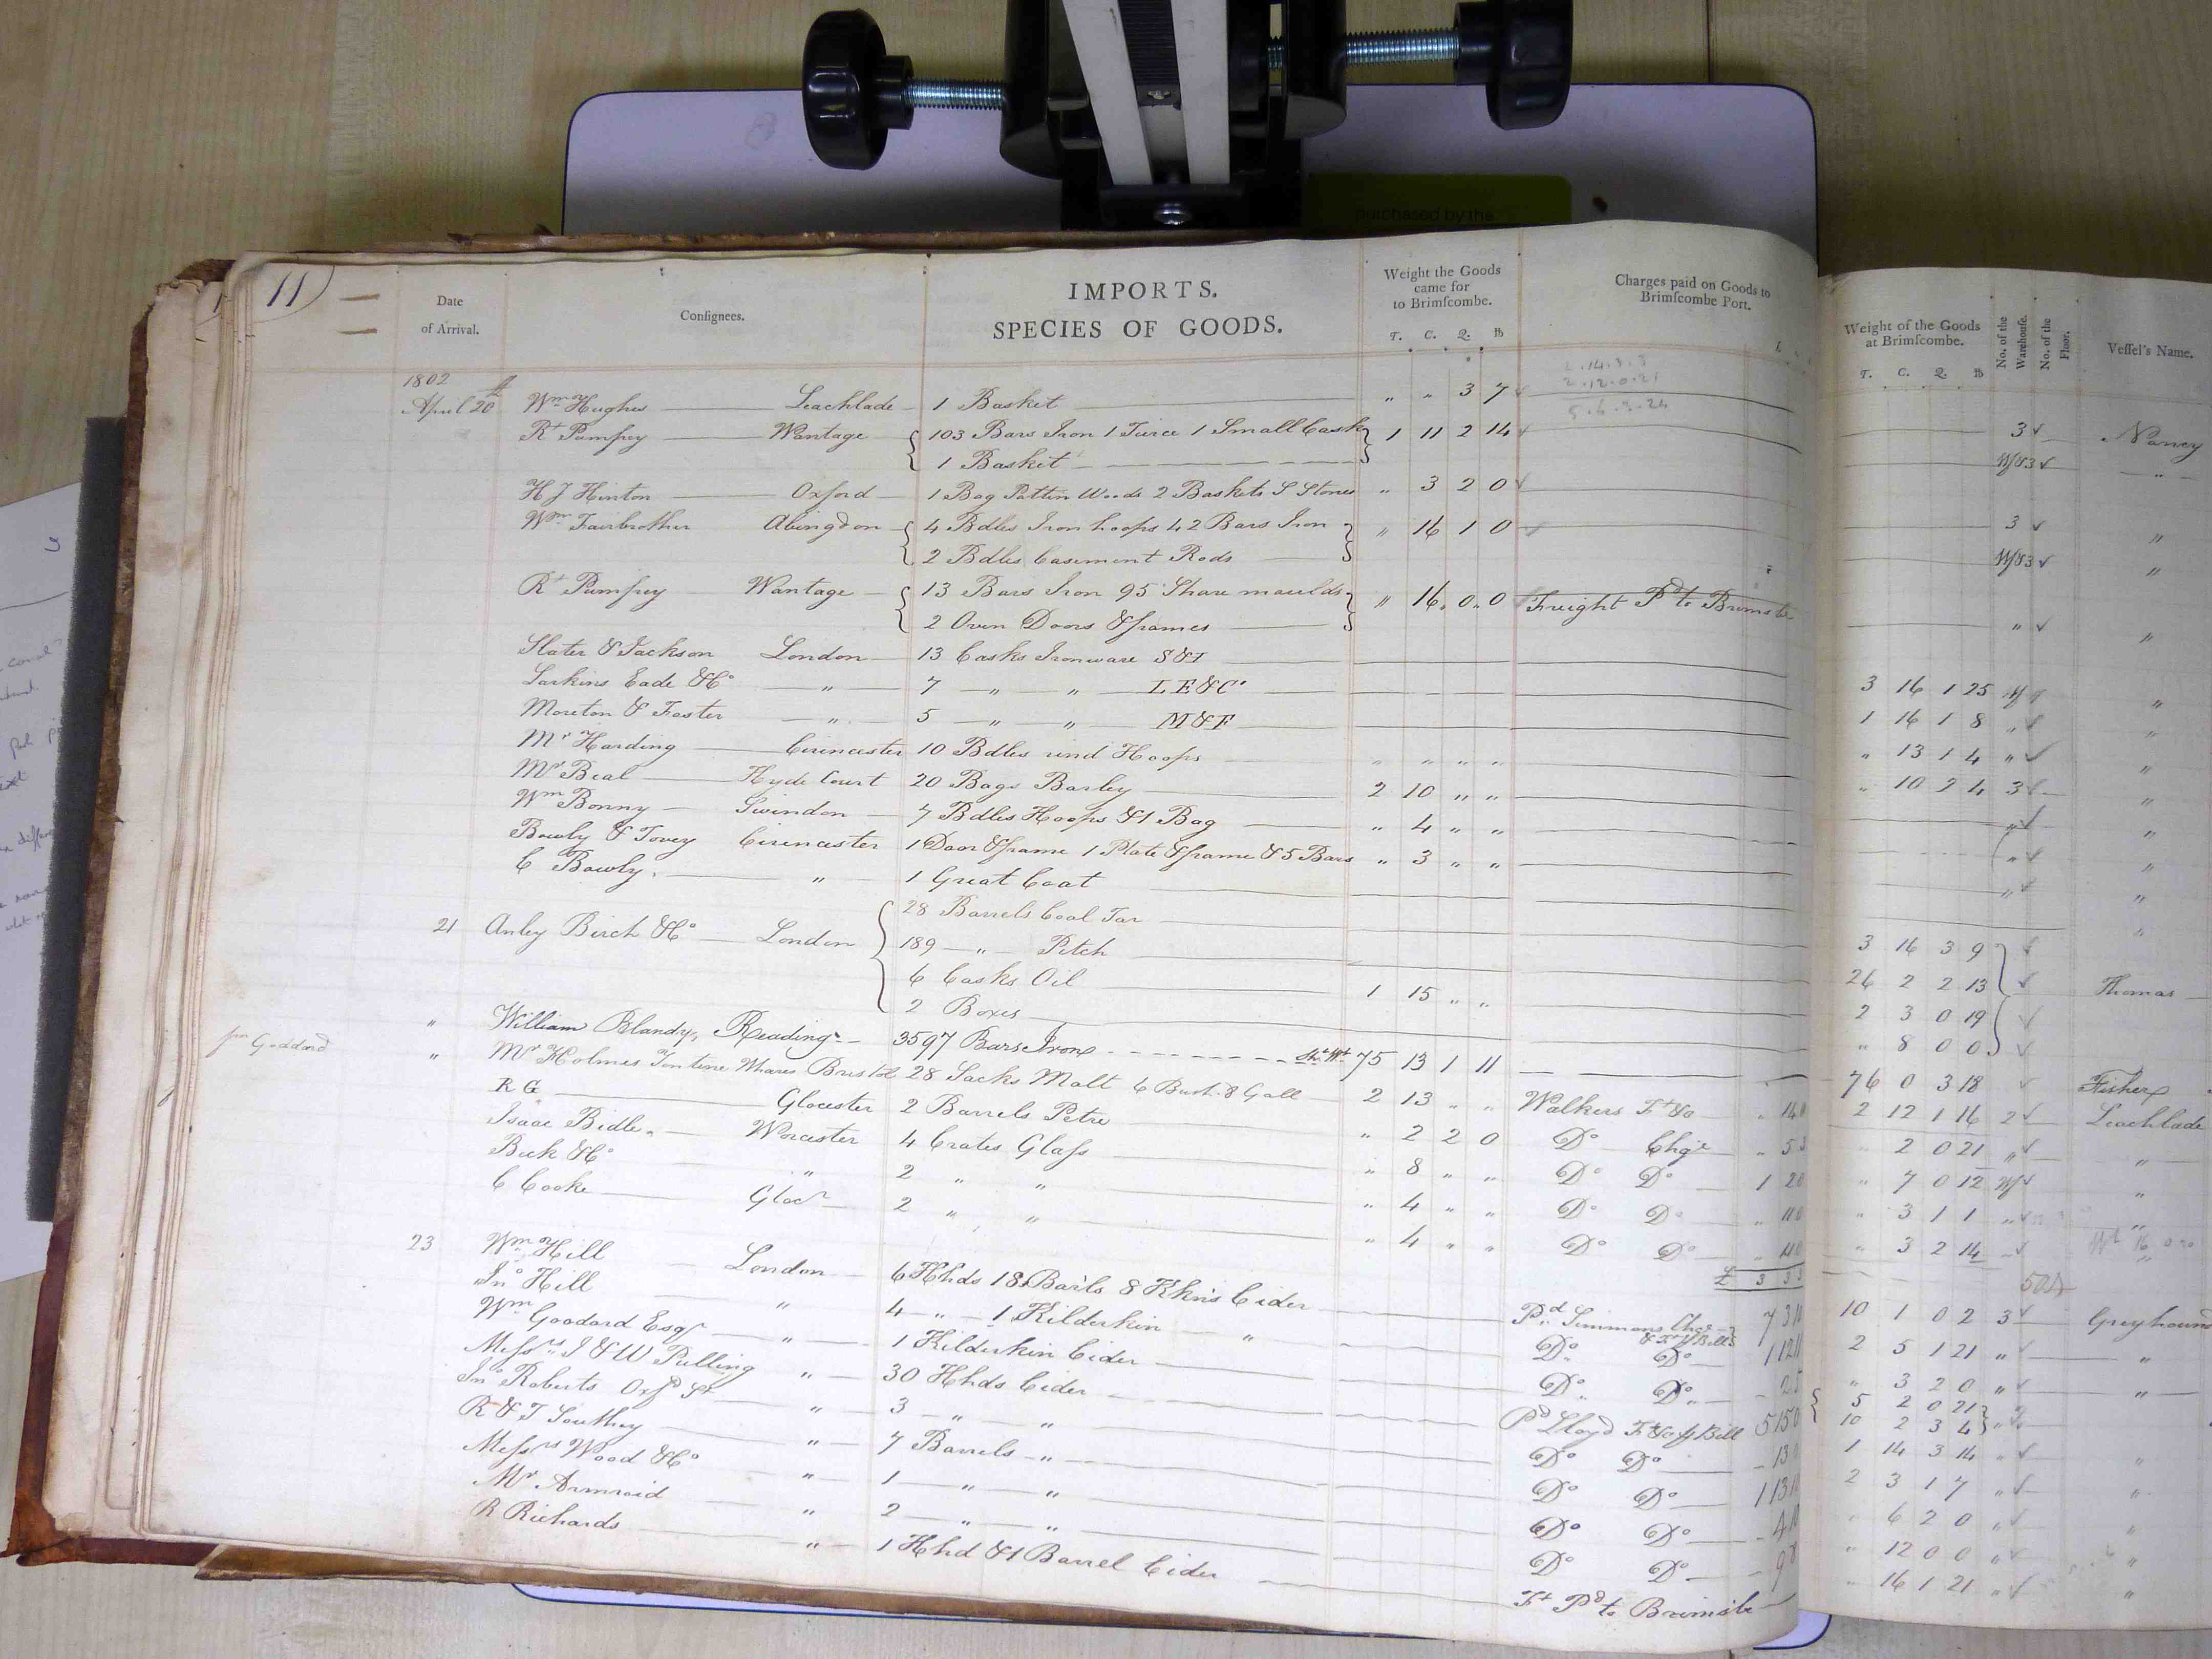 Purchased by the
11
Date of Arrival.
Consignees.
IMPORTS.
SPECIES OF GOODS.
Weight the Goods came for to Brimscombe.
T. C. Q. lb
Charges paid on Goods to Brimscombe Port.
Weight of the Goods at Brimscombe.
T. C. Q. lb
No. of the Warehouse.
No. of the Floor.
Vessel's Name.
2.14.3.3
2.12.0.21
5.6.3.24
1802
April 20th Wm Hughes Leachlade 1 Basket " " 3 7 3 Nancy
Rt Pumfrey Wantage 103 Bars Iron 1 Turce 1 Small Cask 1 11 2 14 "
1 Basket
H J Hinton Oxford 1 Bag Pattin Woods 2 Baskets S Stones " 3 2 0 3 "
Wm Fairbrother Abingdon 4 Bdles Iron hoops 42 Bars Iron " 16 1 0 "
2 Bdles Casement Rods
Rt Pumfrey Wantage 13 Bars Iron 95 Share moulds " 16 0 0 Freight Pd to Brimsbe " "
2 Oven Doors & frames
Slater & Jackson London 13 Casks Ironware S&I 3 16 1 25 "
Larkins Eade & Co " 7 " " LE&Co 1 16 1 8 "
Moreton & Foster " 5 " " M&F " 13 1 4 "
Mr Harding Cirencester 10 Bdles und Hoops " " " " " 10 2 4 3 "
Mr Beal Hyde Court 20 Bags Barley 2 10 " " "
Wm Bonny Swindon 7 Bdles Hoops & 1 Bag " 4 " " "
Bowly & Tovey Cirencester 1 Door & frame 1 Plate & frame & 5 Bars " 3 " " "
C Bowly " 1 Great Coat "
21 Anley Birch & Co London 28 Barrels Coal Tar 3 16 3 9
189 " Pitch 26 2 2 13 Thomas
6 Casks Oil 2 3 0 19
2 Boxes 1 15 " " " 8 0 0
" William Blandy, Reading 3597 Bars Iron 75 13 1 11 76 0 3 18 Fisher
Goddard
" Mr Holmes Tontine Whares Bristol 28 Sacks Malt 6 Bush. 8 Gall 2 13 " " Walkers Ft &a 2 12 1 16 2 Leachlade
R G Glocester 2 Barrels Petre " 2 2 0 Do Chge " 2 0 21 " "
Isaac Bidle Worcester 4 Crates Glass " 8 " " Do Do " 7 0 12 "
Beck & Co " 2 " " " 4 " " Do Do " 3 1 1 " "
C Cooke Glocr 2 " " " 4 " " Do Do " 3 2 14
£ 3 3 3
23 Wm Hill London 6 Hhds 18 Barls 8 Khns Cider Pd Simmons Chge & Ft 10 1 0 2 3 Greyhound
Jno Hill " 4 " 1 Kilderkin " Do Do 2 5 1 21 " "
Wm Goodard Esqr " 1 Kilderkin Cider Do Do " 3 2 0 " "
Messrs I & W Pulling " 30 Hhds Cider Pd Lloyd Ft &a Bill 5 15 0 5 2 0 21
10 2 3 4
Jno Roberts Oxfd St " 3 " " Do Do 1 14 3 14 " "
R & T Southey " 7 Barrels " Do Do 2 3 1 7 " "
Messrs Wood & Co " 1 " " Do Do " 6 2 0 " "
Mr Armroid " 2 " " Do Do " 12 0 0 " "
R Richards " 1 Hhd & 1 Barrel Cider Ft Pd to Brimsbe " 16 1 21 " "